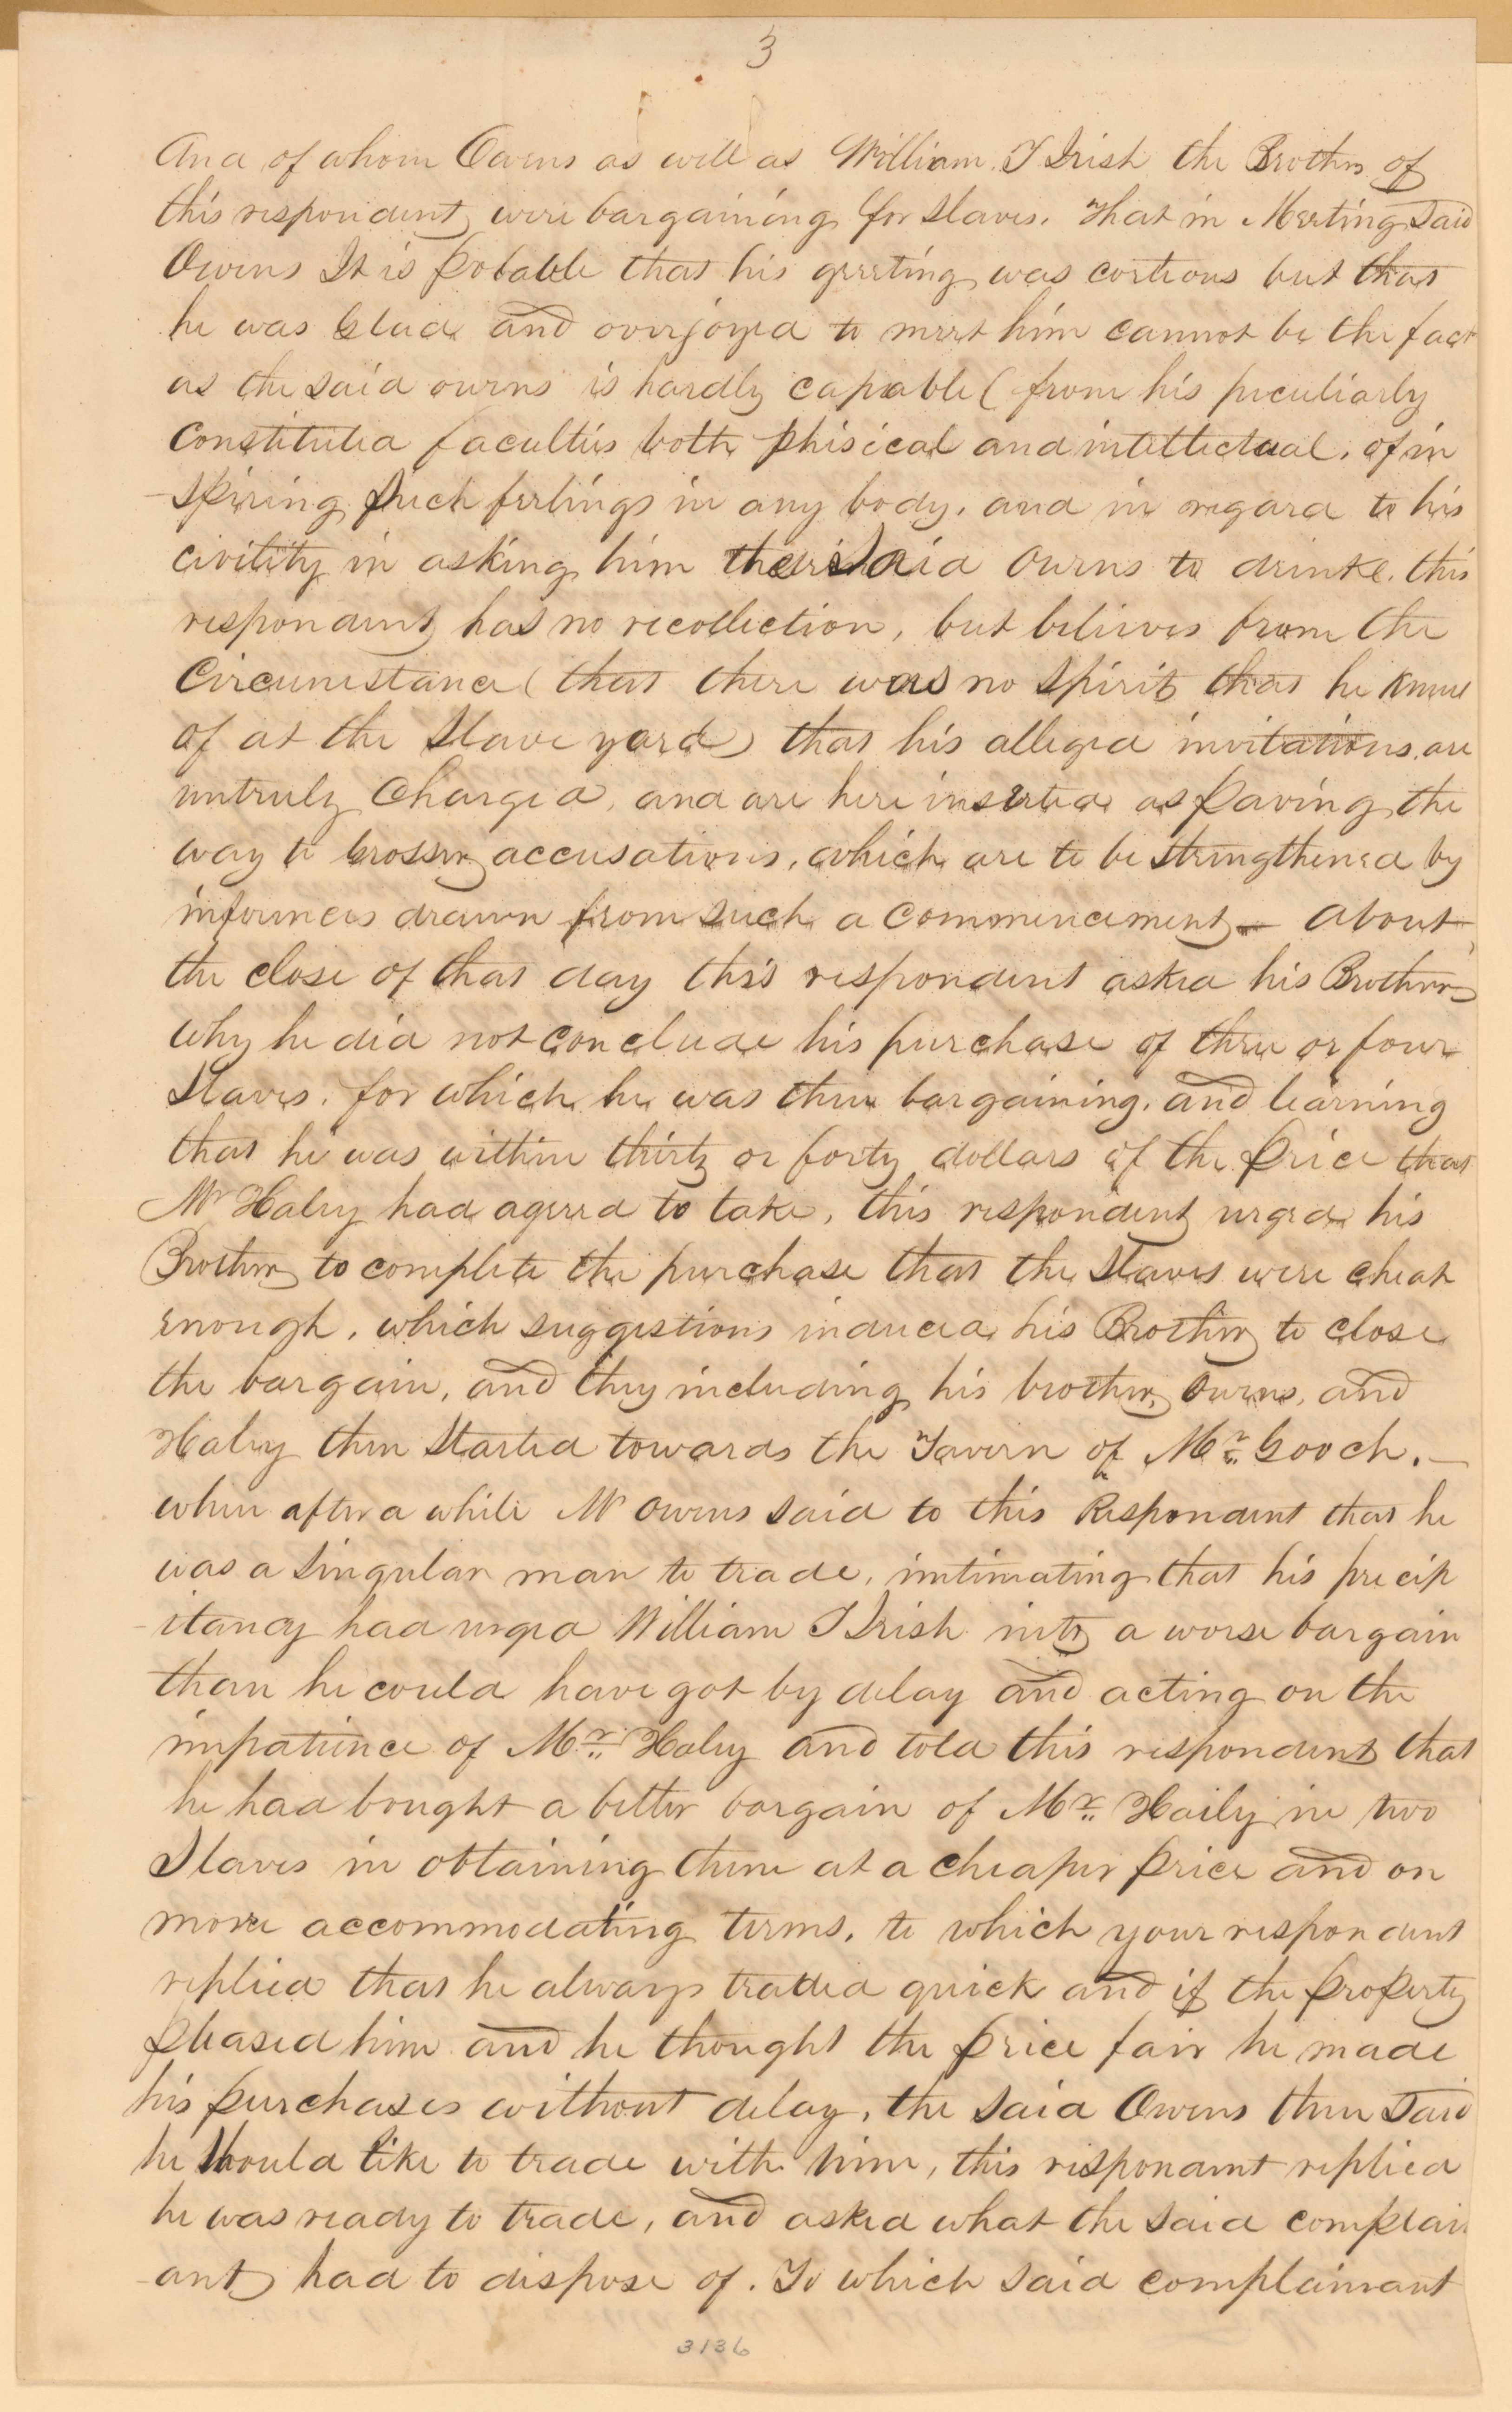 3
And of whom Owens as well as William T Irish the Brother of
this respondent were bargaining for Slaves. That in Meeting Said
Owens It is Pobable that his greeting was corteous but that
he was Glad and overjoyed to meet him cannot be the fact
as the said owens is hardly capable ( from his peculiarly
Constituted faculties both phisical and intellectual. of in
-spiring Such feelings in any body. and in regard to his
civility in asking him the Said Owens to drink. this
respondent has no recollection, but believes from the
Circumstance ( that there was no Spirit that he knew
of at the Slave yard) that his alleged invitations. are
untruly Charged, and are here inserted as Paving the
way to Grosser accusations, which are to be Strengthened by
infernces drawn from such a Commencement — About
the close of that day this respondent asked his Brother
why he did not conclude his purchase of three or four
Slaves. for which he was then bargaining. and learning
that he was within thirty or forty dollars of the Price that
Mr Haley had agreed to take, this respondent urged his
Brother to complete the purchase that the Slaves were cheap
enough, which suggestions induced his Brother to close
the bargain, and they including his brother, Owens, and
Haley then Started towards the Tavern of Mr Gooch. —
when after a while Mr Owens said to this Respondent that he
was a Singular man to trade, intimating that his precip
-itancy had urged William T Irish into a worse bargain
than he could have got by delay and acting on the
impatience of Mr Haley and told this respondent that
he had bought a better bargain of Mr Haily in two
Slaves in obtaining them at a cheaper Price and on
more accommodating terms, to which your respondent
replied that he always traded quick and if the ProPerty
Pleased him and he thought the Price fair he made
his Purchases without delay, the Said Owens then Said
he Should like to trade with him, this respondant replied
he was ready to trade, and asked what the Said complain
-ant had to dispose of. To which Said complainant
3136